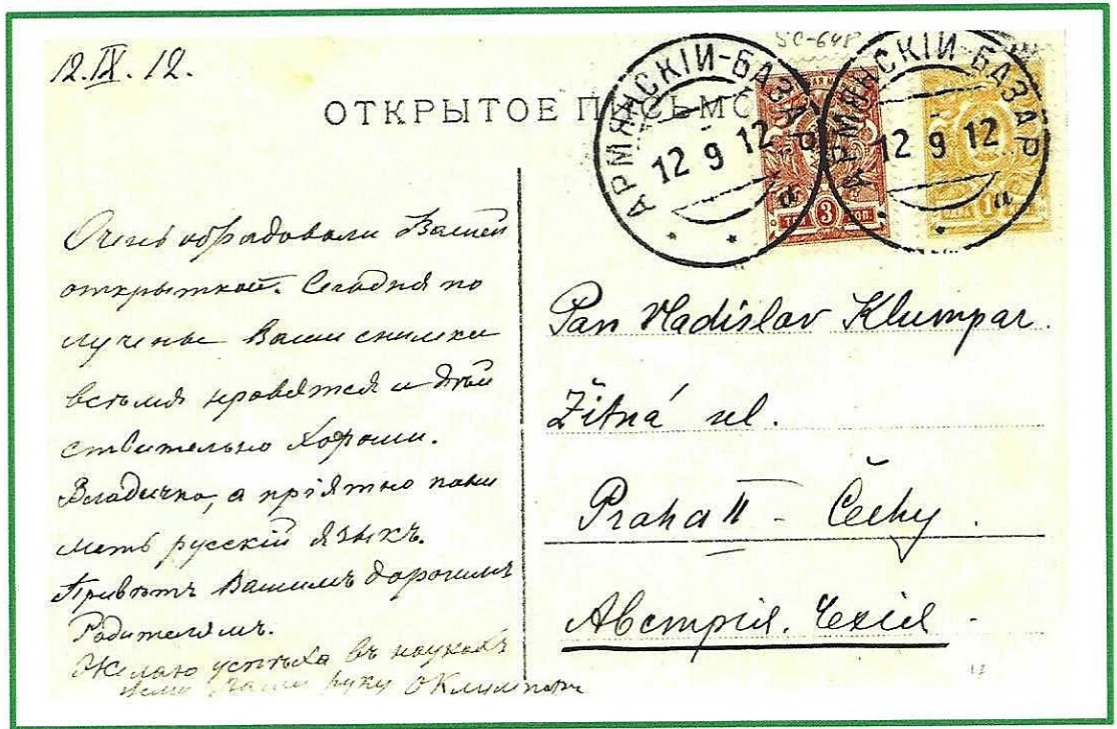 12.IX.12.
SC-648
ОТКРЫТОЕ ПИСЬМО
АРМЯНСКІЙ-БАЗАРЪ
12 9 12
а
АРМЯНСКІЙ-БАЗАРЪ
12 9 12
а
ТРИ 3 КОП.
ОДНА 1
Очень обрадовали Вашей
открыткой. Сегодня по
лучены Ваши снимки
всѣмъ нравятся и дѣй
ствительно хороши.
Владичко, а пріятно пони
мать русскій языкъ.
Привѣтъ Вашимъ дорогимъ
Родителямъ.
Желаю успѣха въ наукахъ
Вашу руку
Pan Vladislav Klumpar.
Žitná ul.
Praha II - Čechy.
Австрія. Чехія